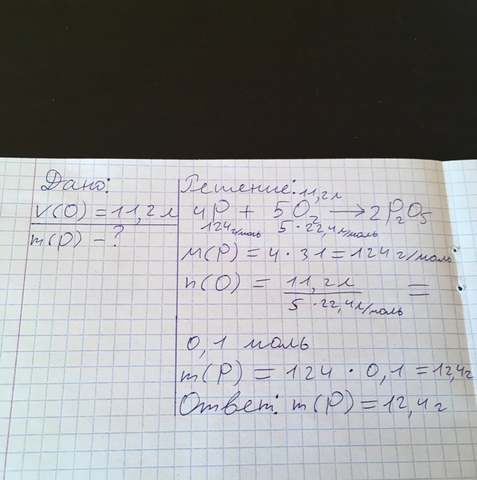 Дано:
V(O) = 11,2 л
m(P) - ?
Решение:
11,2 л
4P + 5O₂ → 2P₂O₅
124 г/моль 5·22,4 л/моль
M(P) = 4 · 31 = 124 г/моль
n(O) = 11,2 л / 5·22,4 л/моль =
0,1 моль
m(P) = 124 · 0,1 = 12,4 г
Ответ: m(P) = 12,4 г